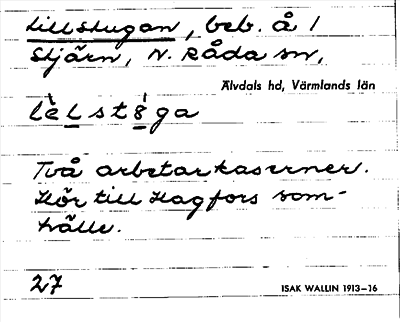 Lillstugan, beb. å 1
Stjärn, N. Råda sn,
Älvdals hd, Värmlands län
lèlstɞ̀ga
Två arbetarkaserner.
Hör till Hagfors sam-
hälle.
27
ISAK WALLIN 1913–16